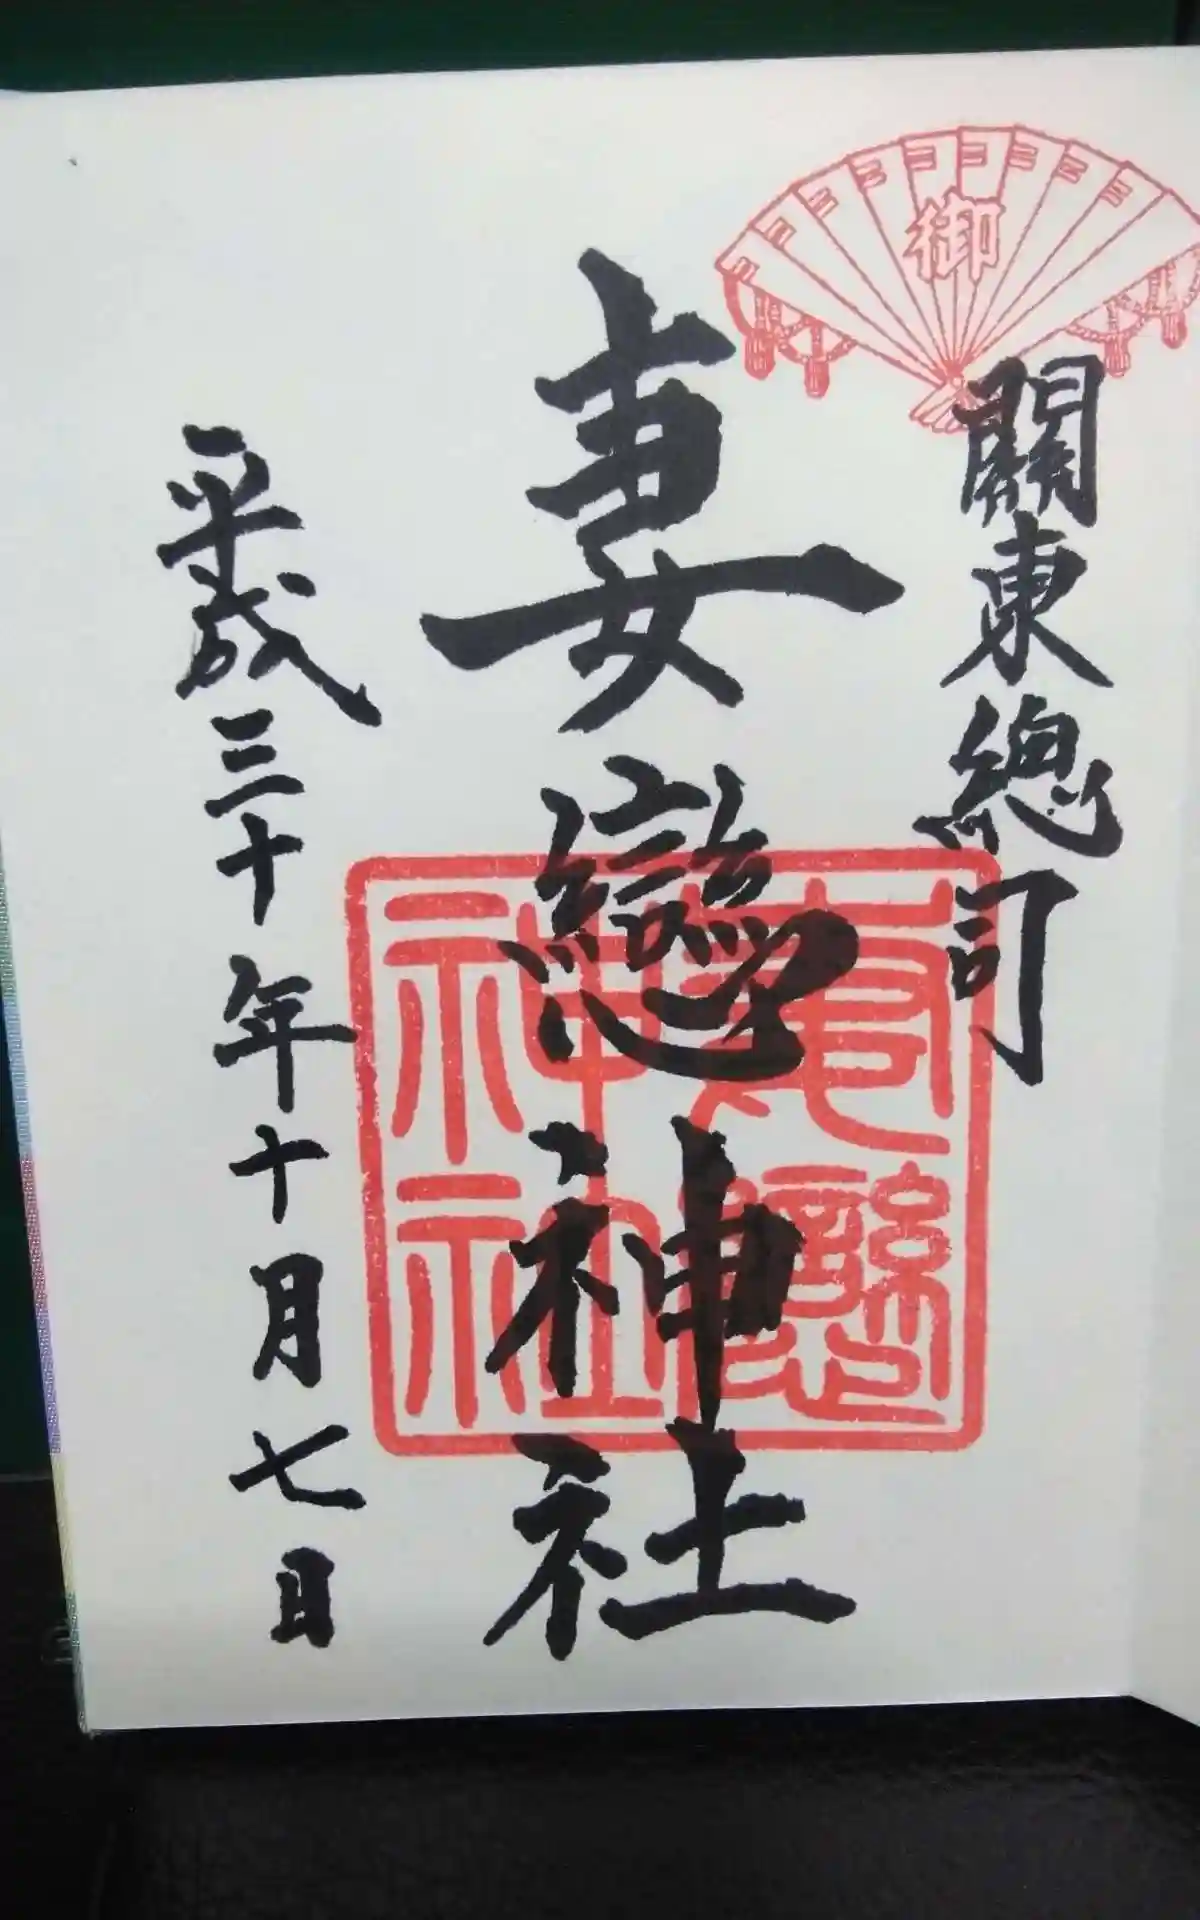 御
關東總司
妻戀神社
妻戀神社
平成三十年十月七日